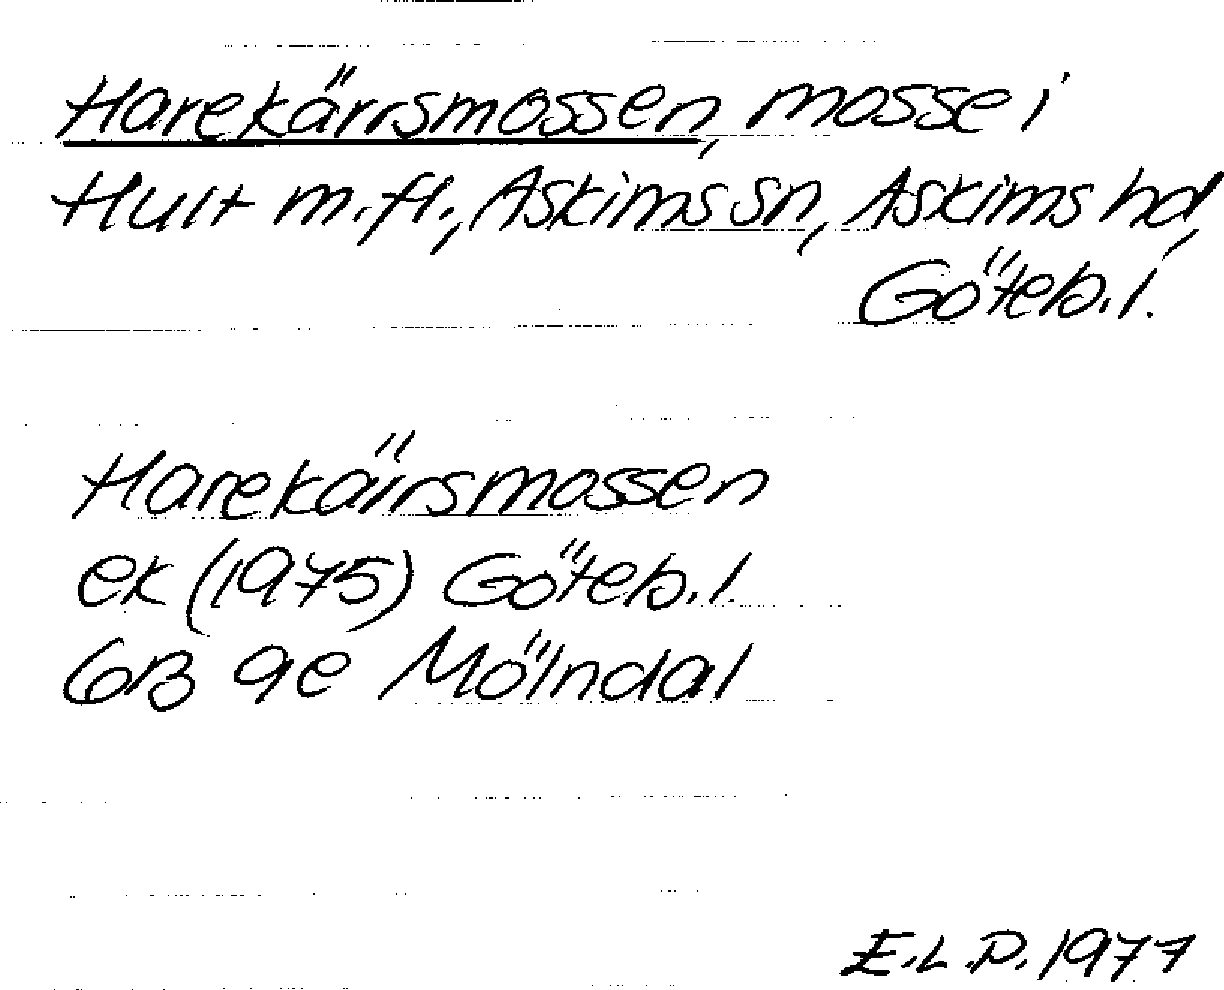 Harekärrsmossen, mosse i
Hult m.fl., Askims sn, Askims hd,
Göteb.l.
Harekärrsmossen
ek (1975) Göteb.l.
6B 9e Mölndal
E.L.P. 1977